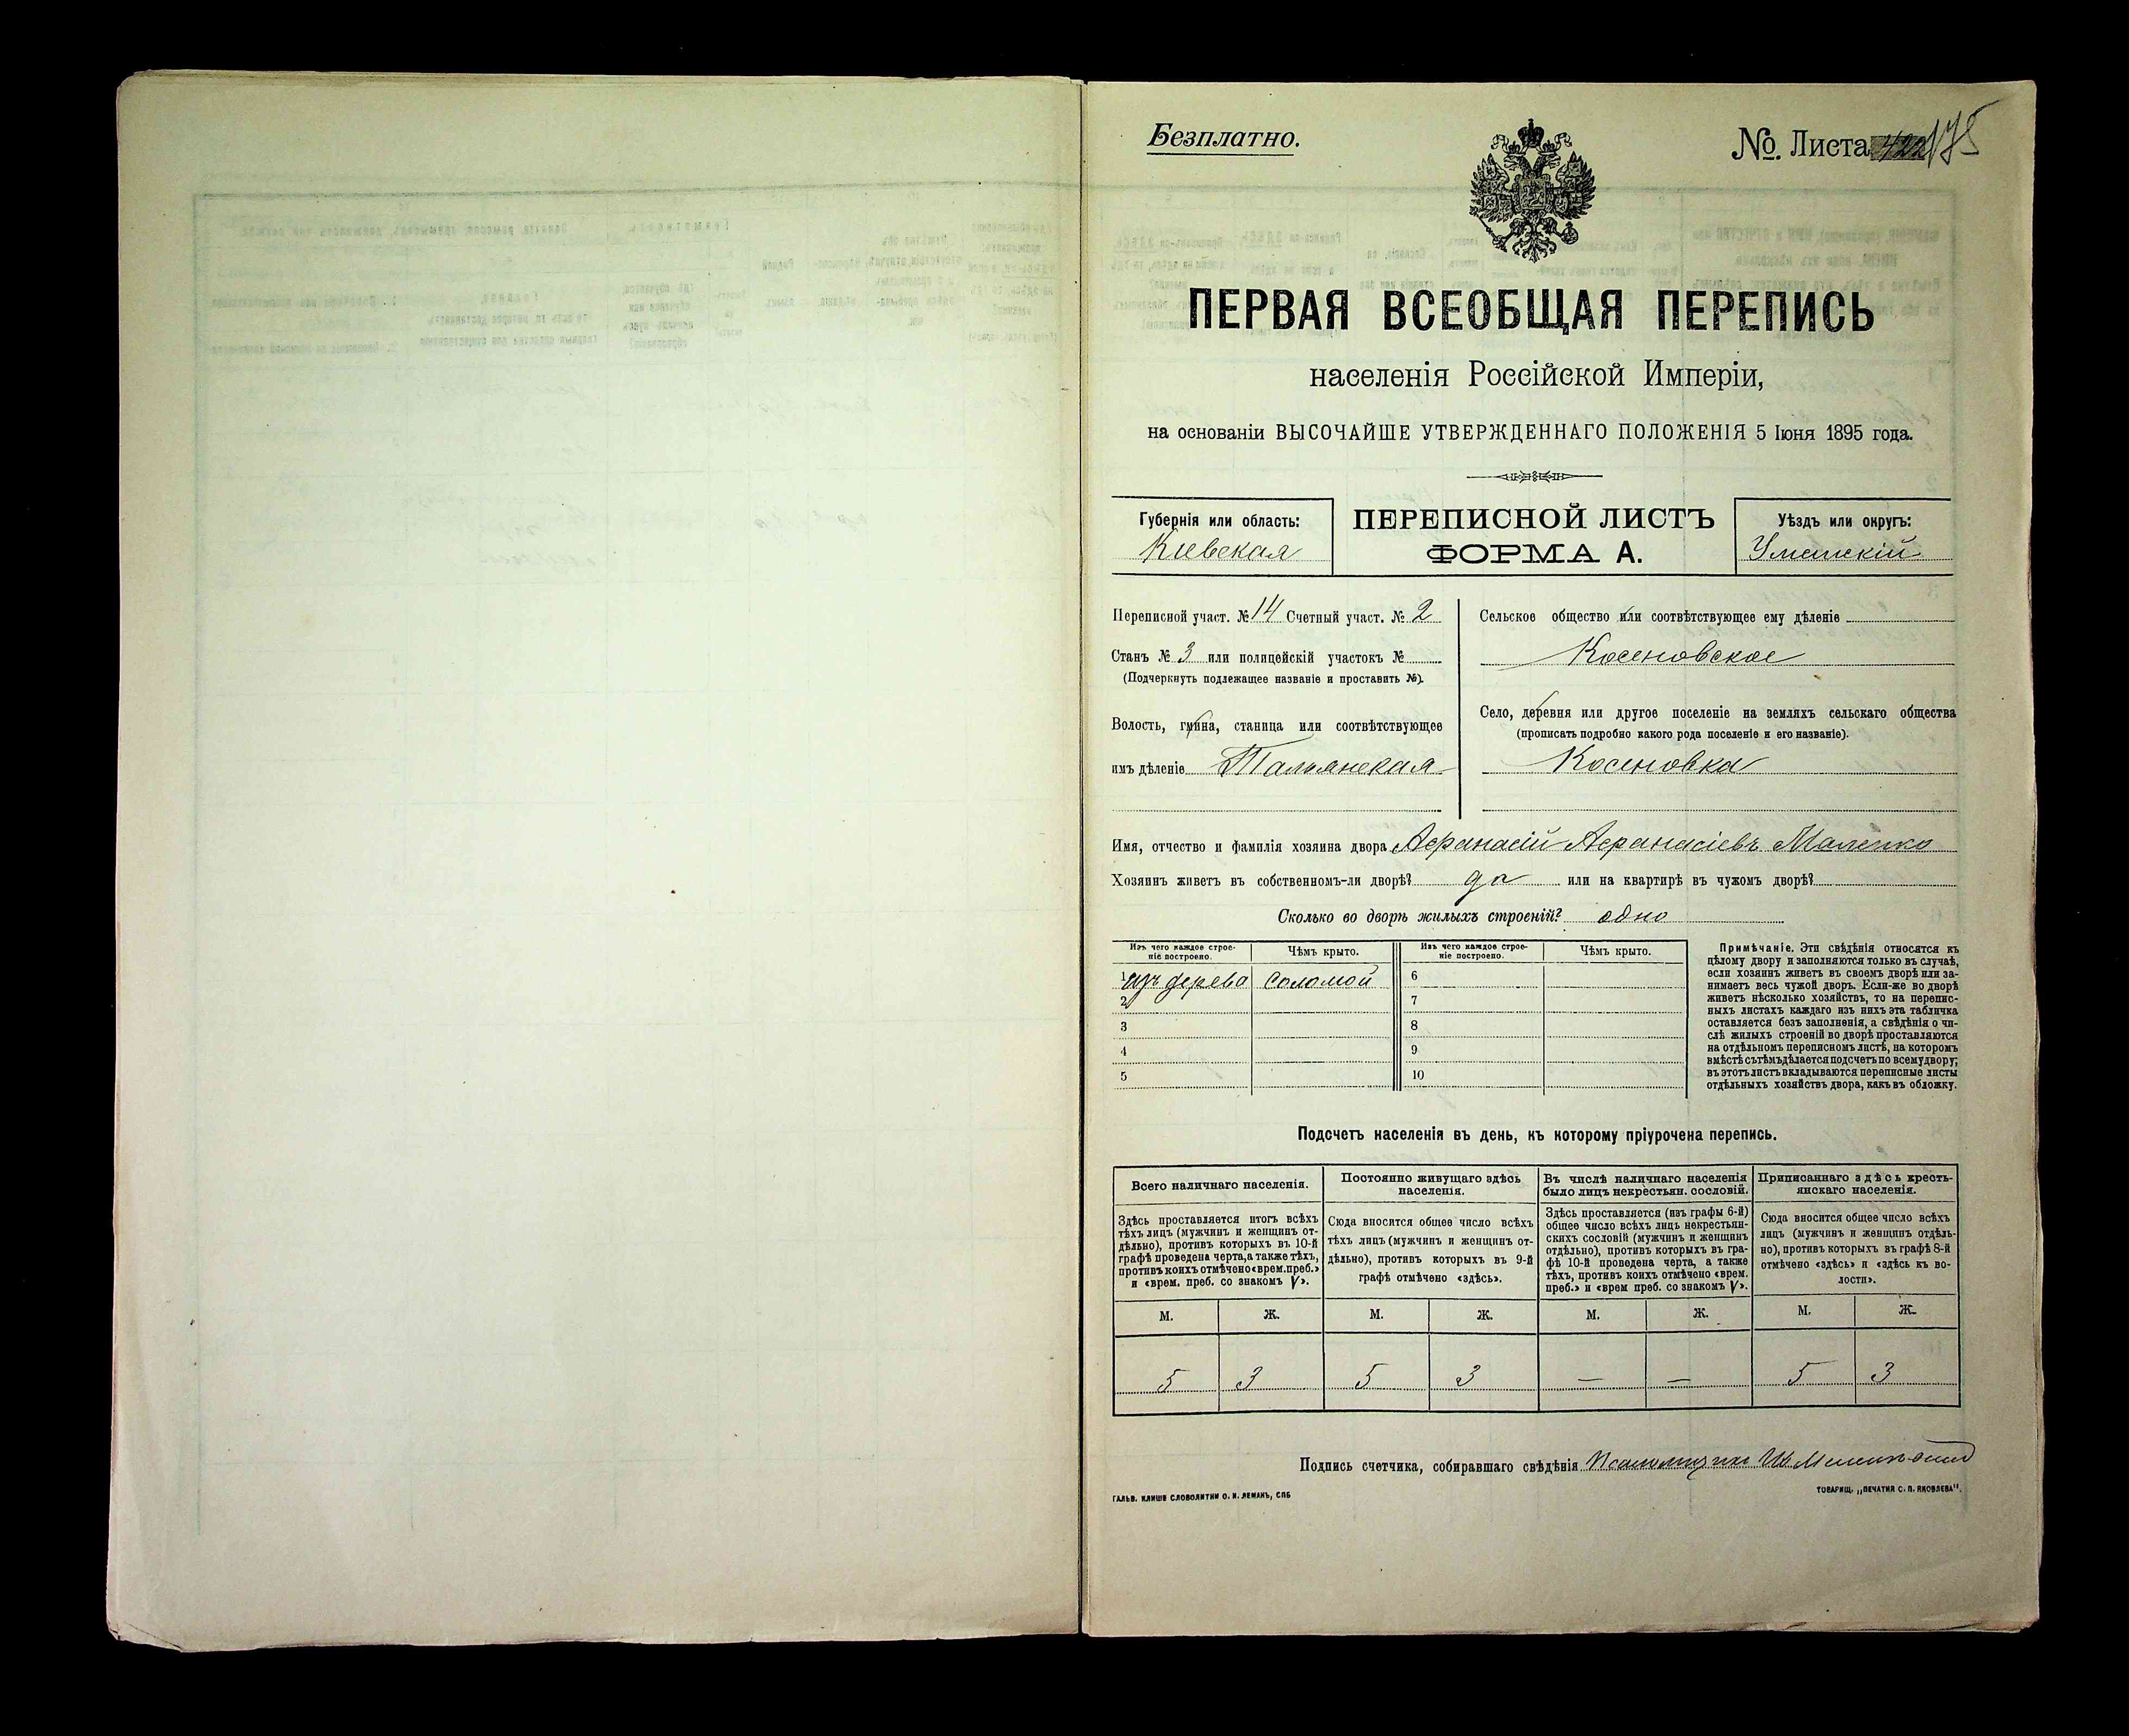 Безплатно.
№. Листа 175
ПЕРВАЯ ВСЕОБЩАЯ ПЕРЕПИСЬ
населенія Россійской Имперіи,
на основаніи ВЫСОЧАЙШЕ УТВЕРЖДЕННАГО ПОЛОЖЕНІЯ 5 Іюня 1895 года.
Губернія или область:
Кіевская
ПЕРЕПИСНОЙ ЛИСТЪ
ФОРМА А.
Уѣздъ или округъ:
Уманскій
Переписной участ. № 14 Счетный участ. № 2
Станъ № 3 или полицейскій участокъ №
(Подчеркнуть подлежащее названіе и проставить №).
Волость, гмина, станица или соотвѣтствующее
имъ дѣленіе Тальянская
Сельское общество или соотвѣтствующее ему дѣленіе
Косеновское
Село, деревня или другое поселеніе на земляхъ сельскаго общества
(прописать подробно какого рода поселеніе и его названіе).
Косеновка
Имя, отчество и фамилія хозяина двора Афанасій Афанасіевъ
Хозяинъ живетъ въ собственномъ-ли дворѣ? да или на квартирѣ въ чужомъ дворѣ?
Сколько во дворѣ жилыхъ строеній? одно
Изъ чего каждое строе-
ніе построено.
Чѣмъ крыто.
Изъ чего каждое строе-
ніе построено.
Чѣмъ крыто.
1 изъ дерева соломой 6
2 7
3 8
4 9
5 10
Примѣчаніе. Эти свѣдѣнія относятся къ
цѣлому двору и заполняются только въ случаѣ,
если хозяинъ живетъ въ своемъ дворѣ или за-
нимаетъ весь чужой дворъ. Если-же во дворѣ
живетъ нѣсколько хозяйствъ, то на перепис-
ныхъ листахъ каждаго изъ нихъ эта табличка
оставляется безъ заполненія, а свѣдѣнія о чи-
слѣ жилыхъ строеній во дворѣ проставляются
на отдѣльномъ переписномъ листѣ, на которомъ
вмѣстѣ съ тѣмъ дѣлается подсчетъ по всему двору;
въ этотъ листъ вкладываются переписные листы
отдѣльныхъ хозяйствъ двора, какъ въ обложку.
Подсчетъ населенія въ день, къ которому пріурочена перепись.
Всего наличнаго населенія.
Здѣсь проставляется итогъ всѣхъ
тѣхъ лицъ (мужчинъ и женщинъ от-
дѣльно), противъ которыхъ въ 10-й
графѣ проведена черта, а также тѣхъ,
противъ коихъ отмѣчено «врем. преб.»
и «врем. преб. со знакомъ V».
Постоянно живущаго здѣсь
населенія.
Сюда вносится общее число всѣхъ
тѣхъ лицъ (мужчинъ и женщинъ от-
дѣльно), противъ которыхъ въ 9-й
графѣ отмѣчено «здѣсь».
Въ числѣ наличнаго населенія
было лицъ некрестьян. сословій.
Здѣсь проставляется (изъ графы 6-й)
общее число всѣхъ лицъ некрестьян-
скихъ сословій (мужчинъ и женщинъ
отдѣльно), противъ которыхъ въ гра-
фѣ 10-й проведена черта, а также
тѣхъ, противъ коихъ отмѣчено «врем.
преб.» и «врем преб. со знакомъ V».
Приписаннаго здѣсь кресть-
янскаго населенія.
Сюда вносится общее число всѣхъ
лицъ (мужчинъ и женщинъ отдѣль-
но), противъ которыхъ въ графѣ 8-й
отмѣчено «здѣсь» и «здѣсь къ во-
лости».
М. Ж. М. Ж. М. Ж. М. Ж.
5 3 5 3 — — 5 3
Подпись счетчика, собиравшаго свѣдѣнія
ГАЛЬВ. КЛИШЕ СЛОВОЛИТНИ О. И. ЛЕМАНЪ, СПБ
ТОВАРИЩ. „ПЕЧАТНЯ С. П. ЯКОВЛЕВА".